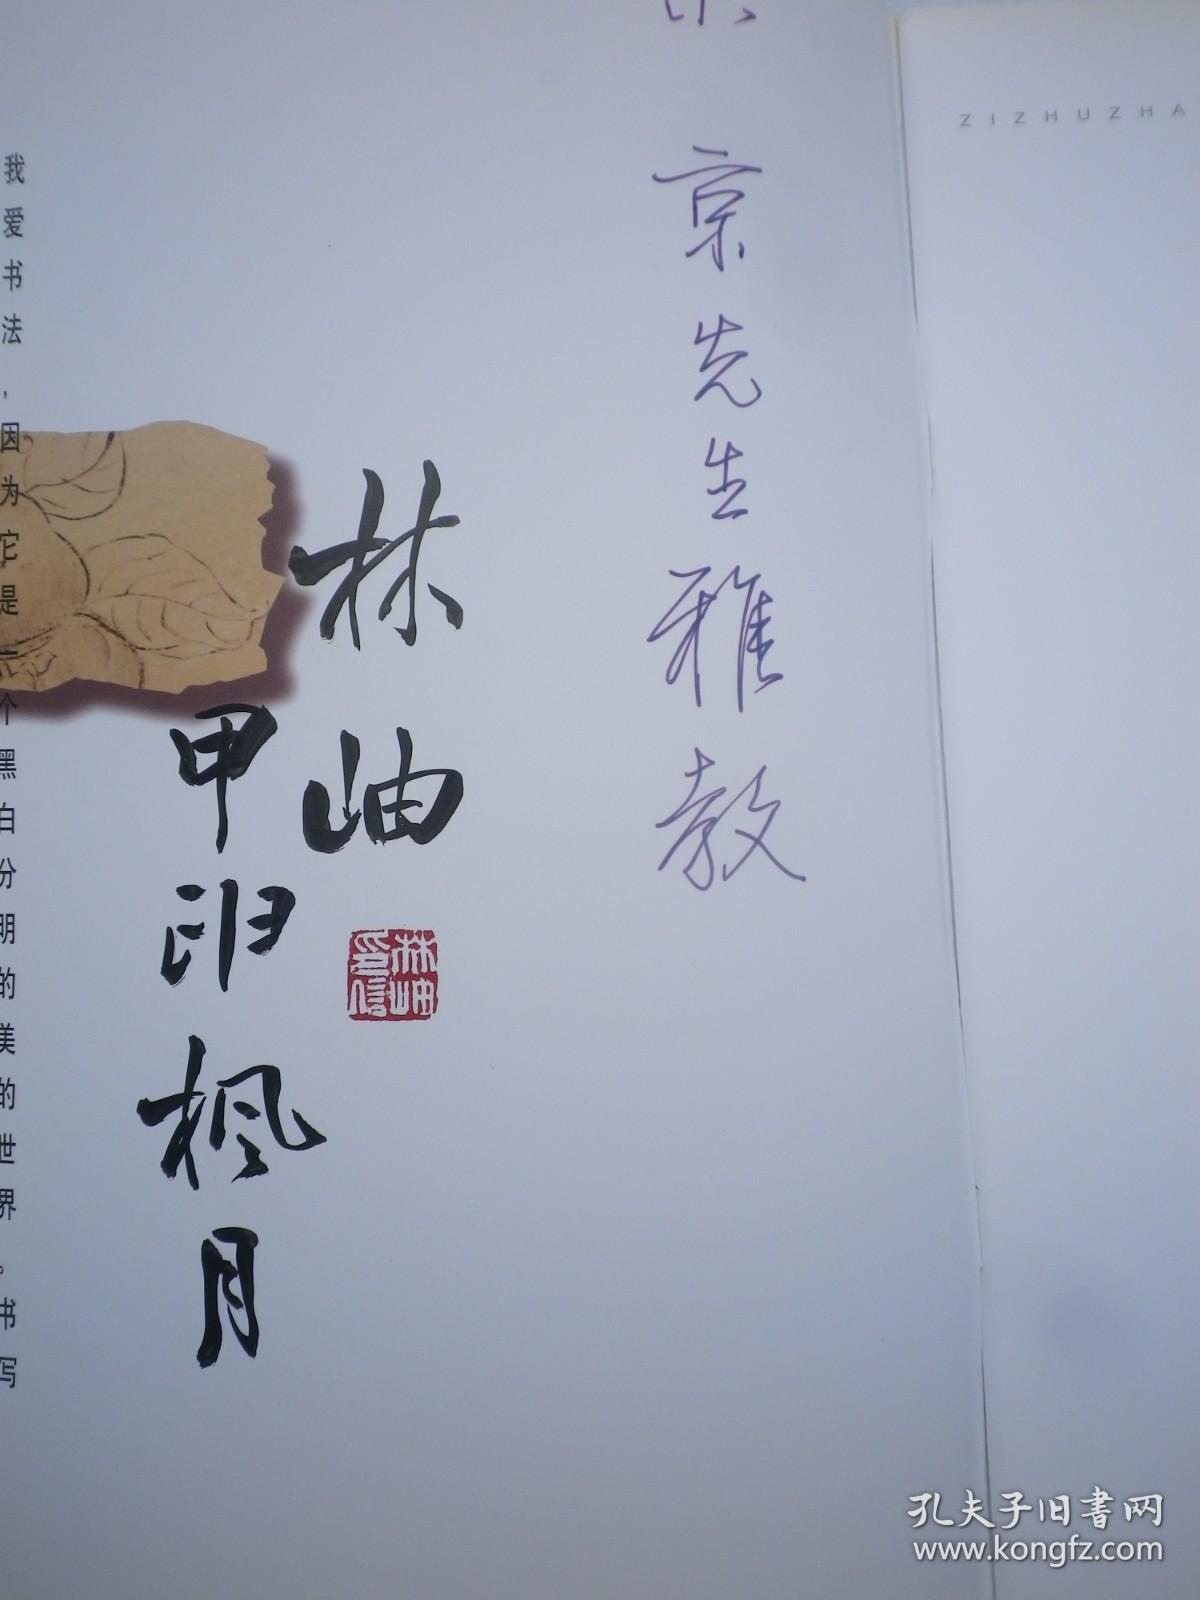 Z I Z H U Z H A
京先生雅教
林岫
林岫印信
甲申枫月
我爱书法，因为它是一个黑白分明的美的世界。书写
孔夫子旧书网
www.kongfz.com